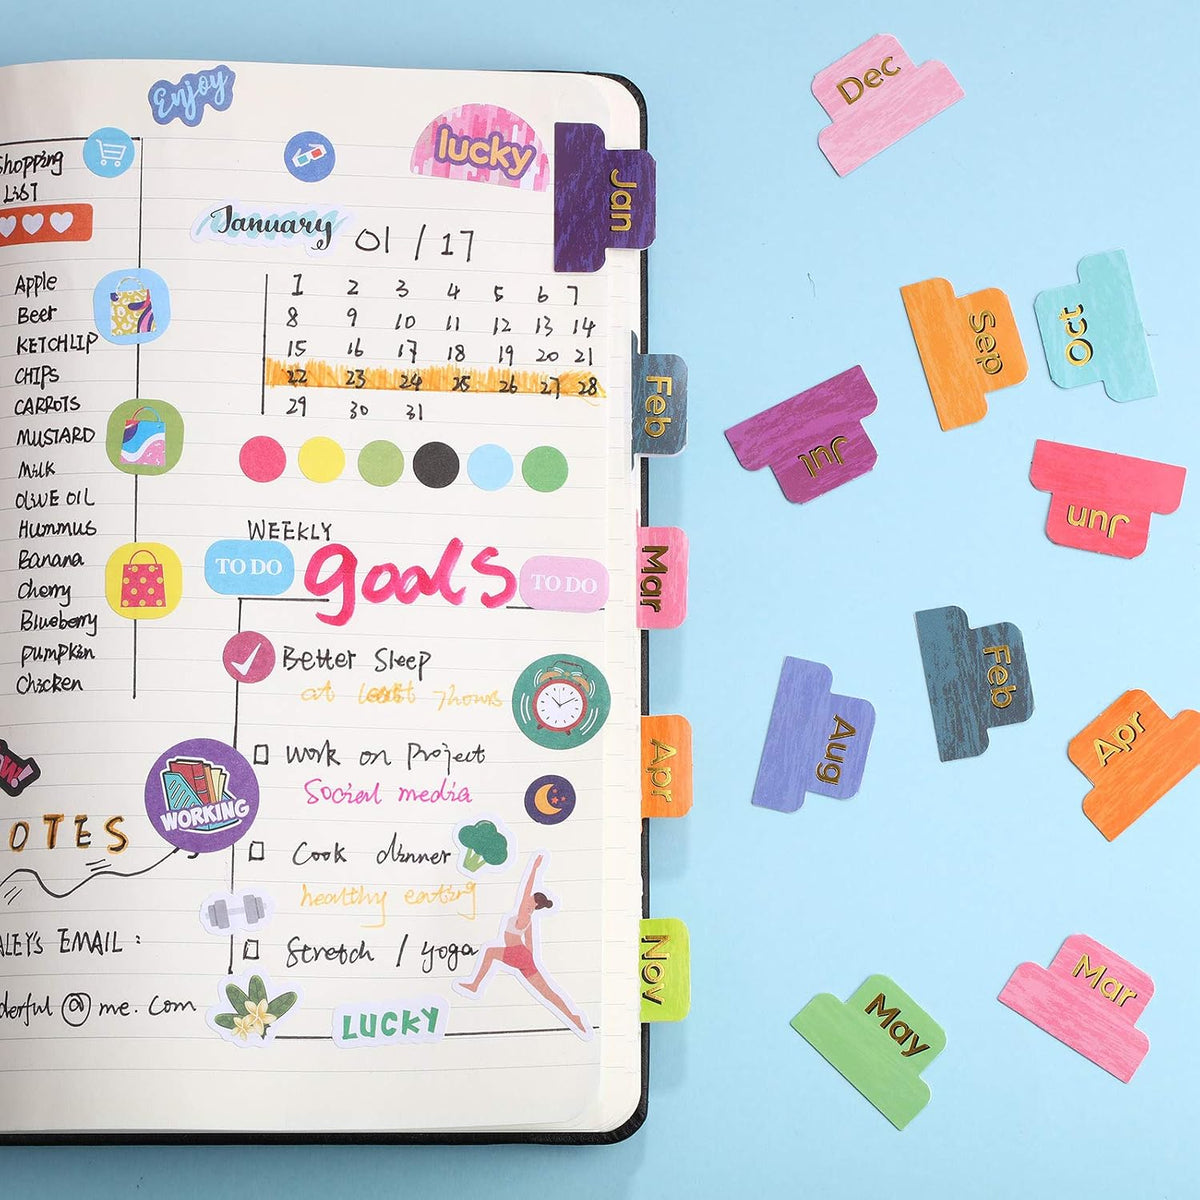 Enjoy
lucky
Shopping
LIST
January 01 / 17
1 2 3 4 5 6 7
8 9 10 11 12 13 14
15 16 17 18 19 20 21
22 23 24 25 26 27 28
29 30 31
Apple
Beer
KETCHLIP
CHIPS
CARROTS
MUSTARD
Milk
OLIVE OIL
Hummus
Banana
Cherry
Blueberry
pumpkin
Chicken
WEEKLY
TO DO
goals
TO DO
Better Sleep
at least 7hours
Work on Project
Social media
WORKING
Cook dinner
healthy eating
Stretch / yoga
LUCKY
OTES
ALEY'S EMAIL :
derful @ me. com
Jan
Feb
Mar
Apr
Nov
Dec
Sep
Oct
Jul
Jun
Feb
Aug
Apr
Mar
May